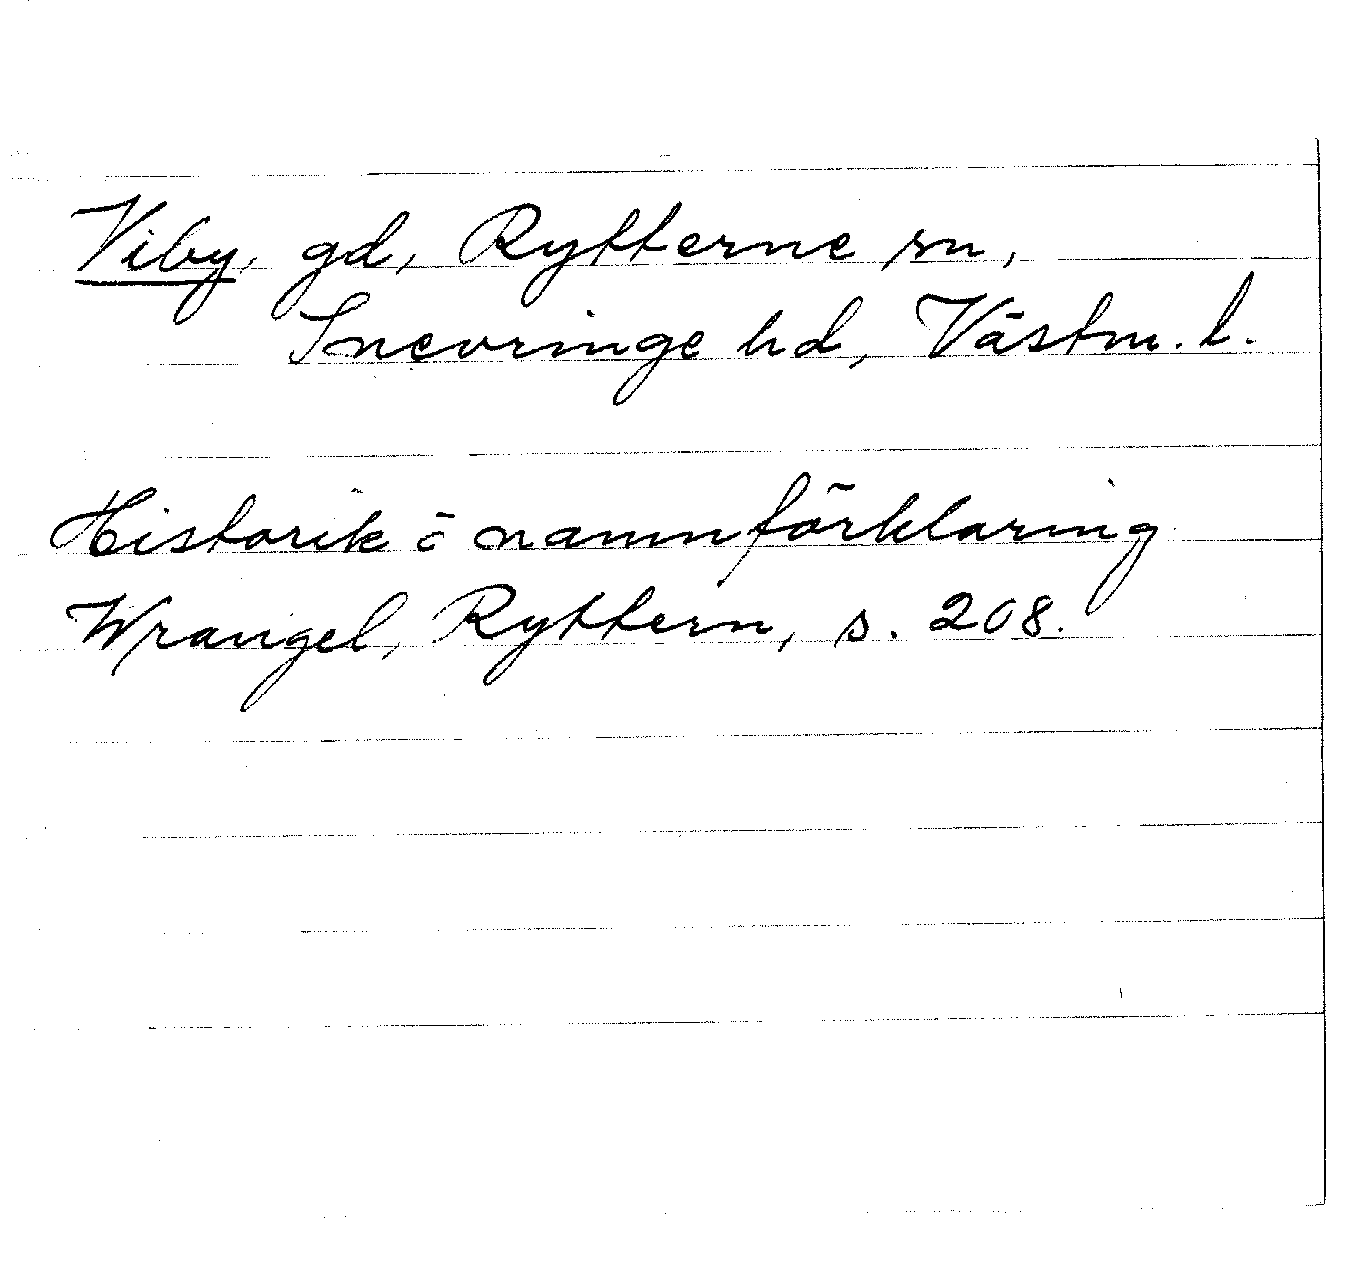 Viby, gd, Rytterne sn,
Snevringe hd, Västm. l.
Historik o namnförklaring
Wrangel, Ryttern, s. 208.